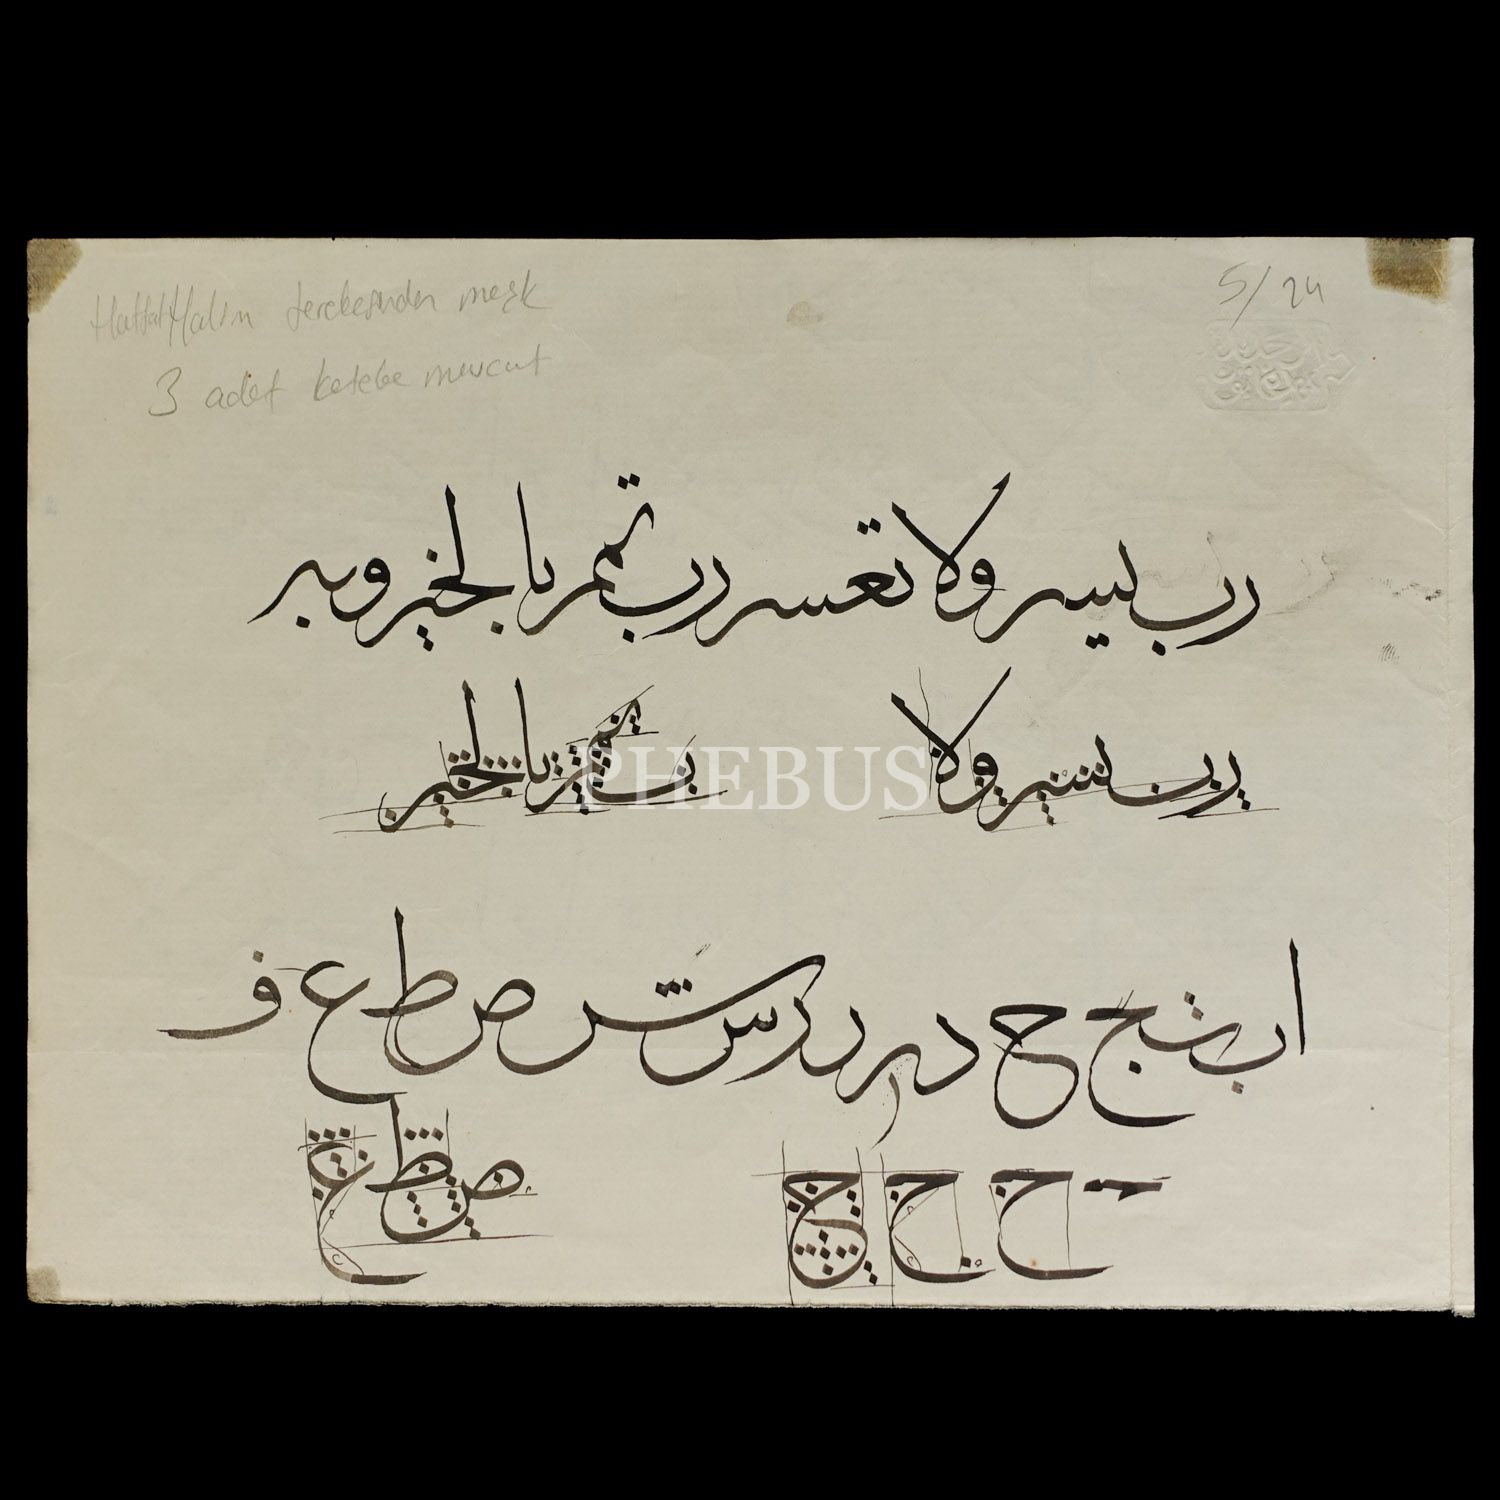 Hattat Halim terekesinden meşk
3 adet ketebe mevcut
5/24
رب يسر ولا تعسر رب تمم بالخير وبه
رب يسر ولا تمم بالخير
PHEBUS
ا ب ث ج ح د ر ر ر س ش ص ط ع ف
ح ح ح ص ط ع